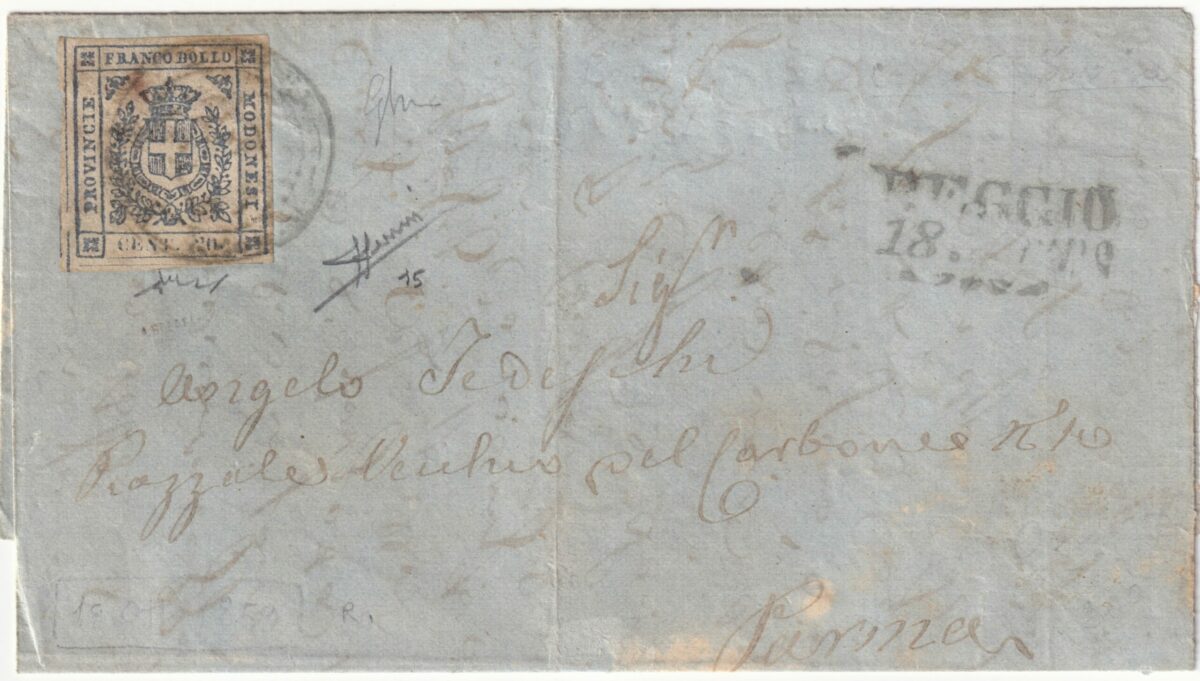 FRANCO BOLLO
PROVINCIE
MODONESI
CENT. 20.
REGGIO
18.
15
Sigr
Angelo Tedeschi
Piazzale Vecchio del Carbone N 10
Parma
R.